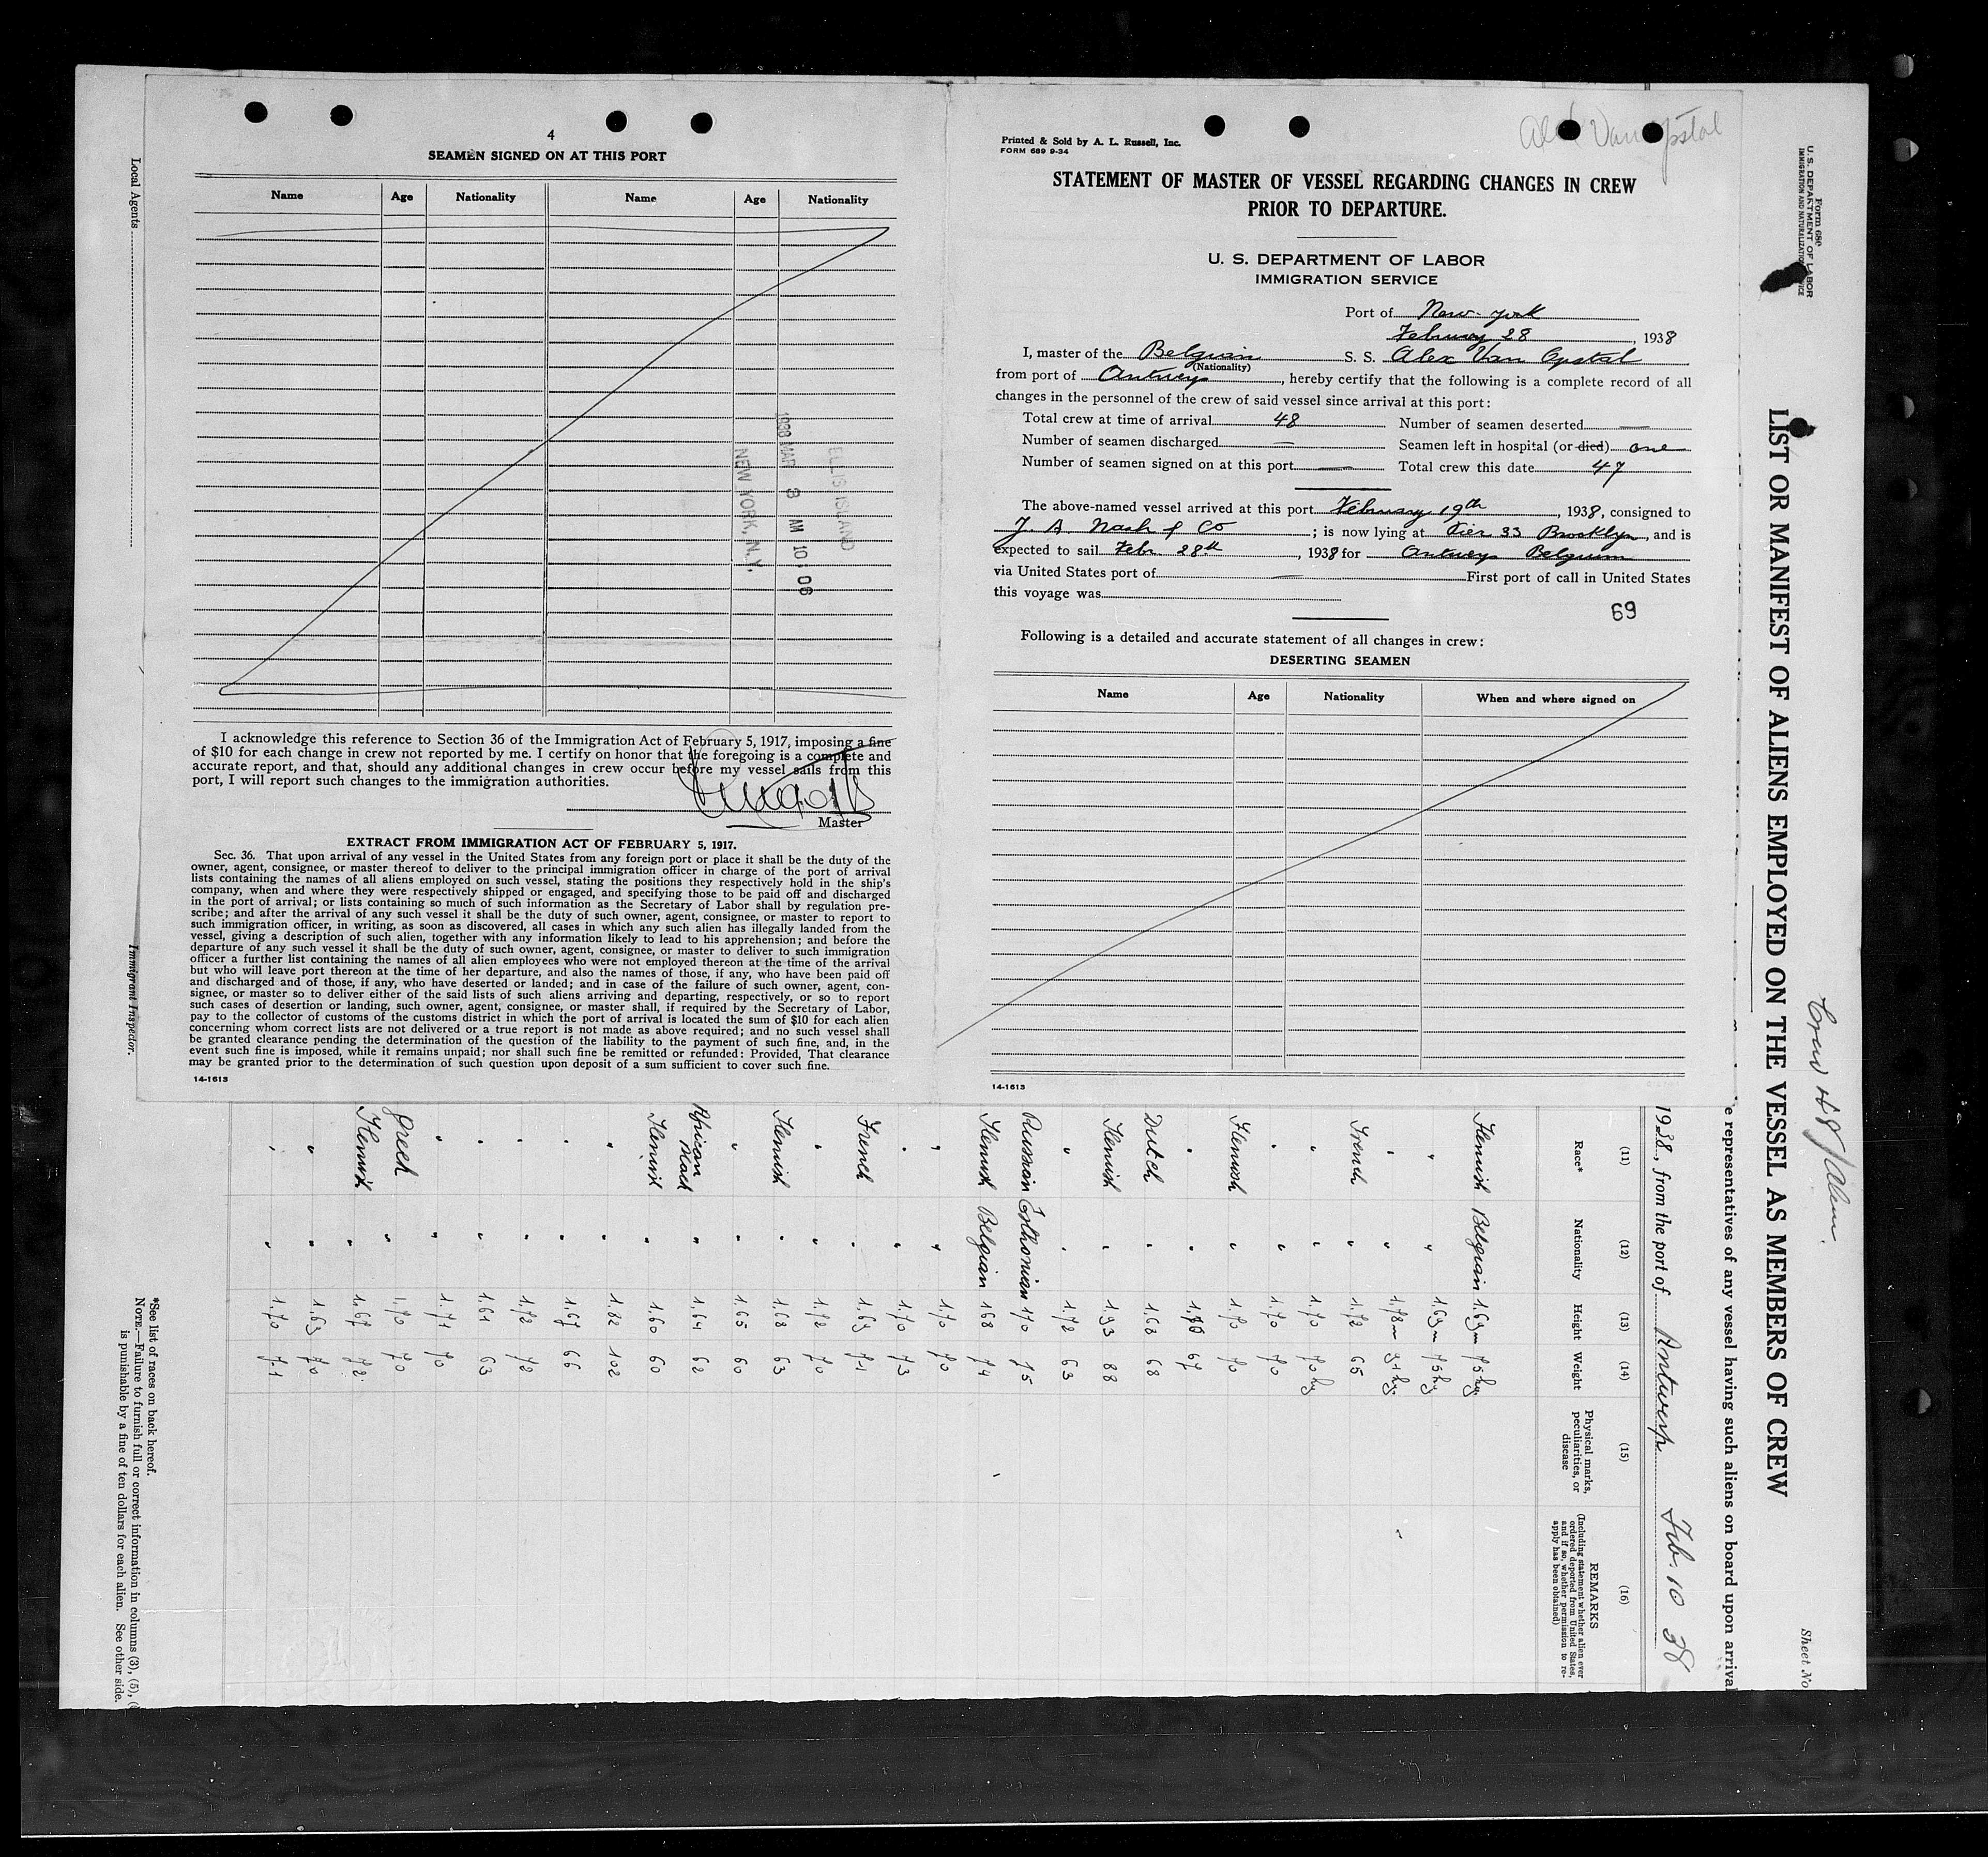 4
SEAMEN SIGNED ON AT THIS PORT
Name Age Nationality Name Age Nationality
ELLIS ISLAND
1938 MAR 3 AM 10 : 06
NEW YORK, N.Y.
I acknowledge this reference to Section 36 of the Immigration Act of February 5, 1917, imposing a fine
of $10 for each change in crew not reported by me. I certify on honor that the foregoing is a complete and
accurate report, and that, should any additional changes in crew occur before my vessel sails from this
port, I will report such changes to the immigration authorities.
Master
EXTRACT FROM IMMIGRATION ACT OF FEBRUARY 5, 1917.
Sec. 36. That upon arrival of any vessel in the United States from any foreign port or place it shall be the duty of the
owner, agent, consignee, or master thereof to deliver to the principal immigration officer in charge of the port of arrival
lists containing the names of all aliens employed on such vessel, stating the positions they respectively hold in the ship's
company, when and where they were respectively shipped or engaged, and specifying those to be paid off and discharged
in the port of arrival; or lists containing so much of such information as the Secretary of Labor shall by regulation pre-
scribe; and after the arrival of any such vessel it shall be the duty of such owner, agent, consignee, or master to report to
such immigration officer, in writing, as soon as discovered, all cases in which any such alien has illegally landed from the
vessel, giving a description of such alien, together with any information likely to lead to his apprehension; and before the
departure of any such vessel it shall be the duty of such owner, agent, consignee, or master to deliver to such immigration
officer a further list containing the names of all alien employees who were not employed thereon at the time of the arrival
but who will leave port thereon at the time of her departure, and also the names of those, if any, who have been paid off
and discharged and of those, if any, who have deserted or landed; and in case of the failure of such owner, agent, con-
signee, or master so to deliver either of the said lists of such aliens arriving and departing, respectively, or so to report
such cases of desertion or landing, such owner, agent, consignee, or master shall, if required by the Secretary of Labor,
pay to the collector of customs of the customs district in which the port of arrival is located the sum of $10 for each alien
concerning whom correct lists are not delivered or a true report is not made as above required; and no such vessel shall
be granted clearance pending the determination of the question of the liability to the payment of such fine, and, in the
event such fine is imposed, while it remains unpaid; nor shall such fine be remitted or refunded: Provided, That clearance
may be granted prior to the determination of such question upon deposit of a sum sufficient to cover such fine.
14-1613
Alex Van Opstal
Printed & Sold by A. L. Russell, Inc.
FORM 689 9-34
STATEMENT OF MASTER OF VESSEL REGARDING CHANGES IN CREW
PRIOR TO DEPARTURE.
U. S. DEPARTMENT OF LABOR
IMMIGRATION SERVICE
Port of New-york
February 28, 1938
I, master of the Belgian S. S. Alex Van Opstal
(Nationality)
from port of Antwerp, hereby certify that the following is a complete record of all
changes in the personnel of the crew of said vessel since arrival at this port:
Total crew at time of arrival 48 Number of seamen deserted —
Number of seamen discharged — Seamen left in hospital (or died) one
Number of seamen signed on at this port — Total crew this date 47
The above-named vessel arrived at this port February 19th, 1938, consigned to
J. A. Nash & Co; is now lying at Pier 33 Brooklyn, and is
expected to sail Febr. 28th, 1938 for Antwerp Belgium
via United States port of — First port of call in United States
this voyage was
69
Following is a detailed and accurate statement of all changes in crew:
DESERTING SEAMEN
Name Age Nationality When and where signed on
14-1613
Form 680
U. S. DEPARTMENT OF LABOR
IMMIGRATION AND NATURALIZATION SERVICE
Sheet No
LIST OR MANIFEST OF ALIENS EMPLOYED ON THE VESSEL AS MEMBERS OF CREW
e representatives of any vessel having such aliens on board upon arrival
1938, from the port of Antwerp Feb. 10 38
(11) (12) (13) (14) (15) (16)
Race* Nationality Height Weight Physical marks, peculiarities, or disease REMARKS
(Including statement whether alien ever
ordered deported from United States,
and if so, whether permission to re-
apply has been obtained)
Flemish Belgian 1.69m 75kg
" " 1.69m 75kg
" " 1.78m 91kg
French " 1.72 65
" " 1.70 70kg
" " 1.70 70
Flemish " 1.70 70
" " 67
Dutch " 1.68 68
Flemish " 1.93 88
" " 1.72 63
Russian Esthonian 170 75
Flemish Belgian 168 74
" " 1.70 70
" " 1.70 73
French " 1.69 71
" " 1.72 70
Flemish " 1.68 63
" " 1.65 60
African black " 1.64 62
Flemish " 1.60 60
" " 1.82 102
" " 1.67 66
" " 1.72 72
" " 1.61 63
" " 1.71 70
Greek " 1.70 70
Flemish " 1.67 72
" " 1.69 70
" " 1.70 71
*See list of races on back hereof.
NOTE.—Failure to furnish full or correct information in columns (3), (5), (
is punishable by a fine of ten dollars for each alien. See other side.
Local Agents
Immigrant Inspector.